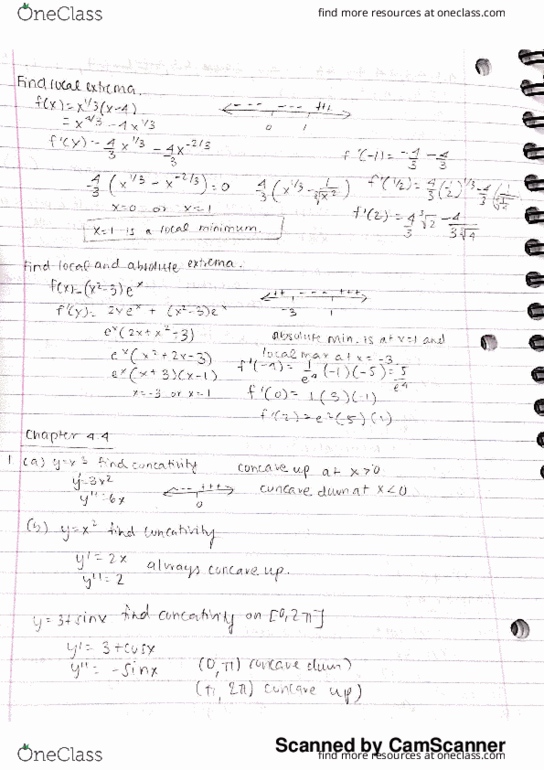 OneClass
find more resources at oneclass.com
Find local extrema.
f(x) = x^1/3 (x-4)
= x^4/3 - 4x^1/3
f'(x) = 4/3 x^1/3 - 4/3 x^-2/3
4/3 (x^1/3 - x^-2/3) = 0
x=0 or x=1
x=1 is a local minimum.
--- --- ++
0 1
f'(-1) = -4/3 - 4/3
4/3 (x^1/3 - 1/∛x²)
f'(1/2) = 4/3 (1/2)^1/3 - 4/3
f'(2) = 4/3 ∛2 - 4/3∛4
Find local and absolute extrema.
f(x) = (x²-3)e^x
f'(x) = 2xe^x + (x²-3)e^x
e^x (2x+x²-3)
e^x (x²+2x-3)
e^x (x+3)(x-1)
x=-3 or x=1
++ --- +++
-3 1
absolute min. is at x=1 and
local max at x=-3
f'(-4) = 1/e^4 (-1)(-5) = 5/e^4
f'(0) = 1(3)(-1)
f'(2) = e²(5)(1)
Chapter 4.4
1 (a) y=x³ find concativity
y'=3x²
y''=6x
--- +++
0
concave up at x>0
concave down at x<0
(b) y=x² find concativity
y' = 2x
y''=2
always concave up.
y = 3+sinx find concativity on [0,2π]
y' = 3+cosx
y'' = -sinx
(0,π) concave down)
(π, 2π) concave up)
Scanned by CamScanner
OneClass
find more resources at oneclass.com